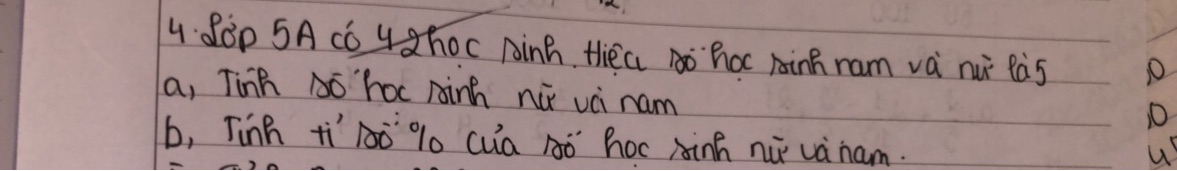 4. Lớp 5A có 42 học sinh. Hiệu số học sinh nam và nữ là 5
a, Tính số học sinh nữ và nam
b, Tính tỉ số % của số học sinh nữ và nam.